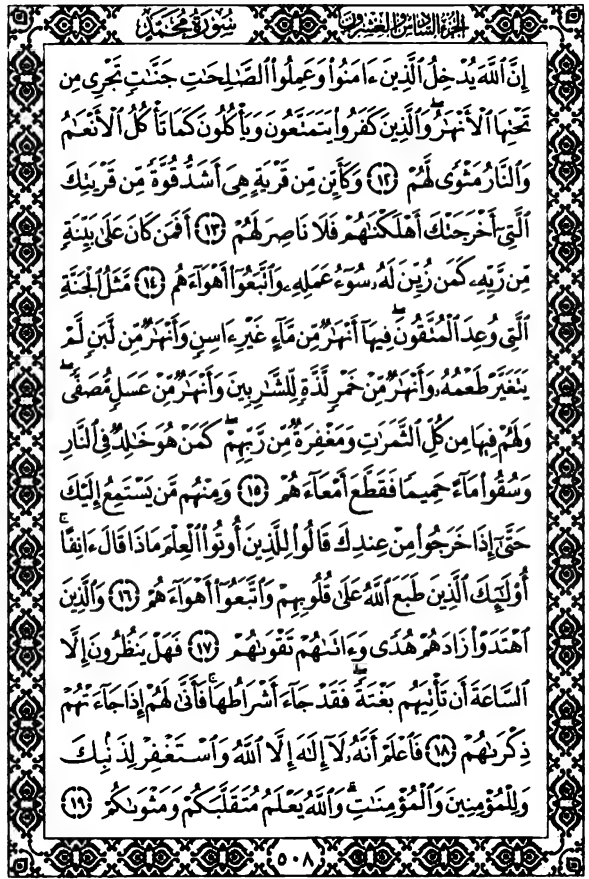 سُورَةُ مُحَمَّدٍ الجُزْءُ السَّادِسُ وَالعِشْرُونَ
إِنَّ ٱللَّهَ يُدْخِلُ ٱلَّذِينَ ءَامَنُوا۟ وَعَمِلُوا۟ ٱلصَّـٰلِحَـٰتِ جَنَّـٰتٍ تَجْرِى مِن
تَحْتِهَا ٱلْأَنْهَـٰرُ ۖ وَٱلَّذِينَ كَفَرُوا۟ يَتَمَتَّعُونَ وَيَأْكُلُونَ كَمَا تَأْكُلُ ٱلْأَنْعَـٰمُ
وَٱلنَّارُ مَثْوًى لَّهُمْ ﴿١٢﴾ وَكَأَيِّن مِّن قَرْيَةٍ هِىَ أَشَدُّ قُوَّةً مِّن قَرْيَتِكَ
ٱلَّتِىٓ أَخْرَجَتْكَ أَهْلَكْنَـٰهُمْ فَلَا نَاصِرَ لَهُمْ ﴿١٣﴾ أَفَمَن كَانَ عَلَىٰ بَيِّنَةٍ
مِّن رَّبِّهِۦ كَمَن زُيِّنَ لَهُۥ سُوٓءُ عَمَلِهِۦ وَٱتَّبَعُوٓا۟ أَهْوَآءَهُم ﴿١٤﴾ مَّثَلُ ٱلْجَنَّةِ
ٱلَّتِى وُعِدَ ٱلْمُتَّقُونَ ۖ فِيهَآ أَنْهَـٰرٌ مِّن مَّآءٍ غَيْرِ ءَاسِنٍ وَأَنْهَـٰرٌ مِّن لَّبَنٍ لَّمْ
يَتَغَيَّرْ طَعْمُهُۥ وَأَنْهَـٰرٌ مِّنْ خَمْرٍ لَّذَّةٍ لِّلشَّـٰرِبِينَ وَأَنْهَـٰرٌ مِّنْ عَسَلٍ مُّصَفًّى ۖ
وَلَهُمْ فِيهَا مِن كُلِّ ٱلثَّمَرَٰتِ وَمَغْفِرَةٌ مِّن رَّبِّهِمْ ۖ كَمَنْ هُوَ خَـٰلِدٌ فِى ٱلنَّارِ
وَسُقُوا۟ مَآءً حَمِيمًا فَقَطَّعَ أَمْعَآءَهُمْ ﴿١٥﴾ وَمِنْهُم مَّن يَسْتَمِعُ إِلَيْكَ
حَتَّىٰٓ إِذَا خَرَجُوا۟ مِنْ عِندِكَ قَالُوا۟ لِلَّذِينَ أُوتُوا۟ ٱلْعِلْمَ مَاذَا قَالَ ءَانِفًا ۚ
أُو۟لَـٰٓئِكَ ٱلَّذِينَ طَبَعَ ٱللَّهُ عَلَىٰ قُلُوبِهِمْ وَٱتَّبَعُوٓا۟ أَهْوَآءَهُمْ ﴿١٦﴾ وَٱلَّذِينَ
ٱهْتَدَوْا۟ زَادَهُمْ هُدًى وَءَاتَىٰهُمْ تَقْوَىٰهُمْ ﴿١٧﴾ فَهَلْ يَنظُرُونَ إِلَّا
ٱلسَّاعَةَ أَن تَأْتِيَهُم بَغْتَةً ۖ فَقَدْ جَآءَ أَشْرَاطُهَا ۚ فَأَنَّىٰ لَهُمْ إِذَا جَآءَتْهُمْ
ذِكْرَىٰهُمْ ﴿١٨﴾ فَٱعْلَمْ أَنَّهُۥ لَآ إِلَـٰهَ إِلَّا ٱللَّهُ وَٱسْتَغْفِرْ لِذَنۢبِكَ
وَلِلْمُؤْمِنِينَ وَٱلْمُؤْمِنَـٰتِ ۗ وَٱللَّهُ يَعْلَمُ مُتَقَلَّبَكُمْ وَمَثْوَىٰكُمْ ﴿١٩﴾
٥٠٨